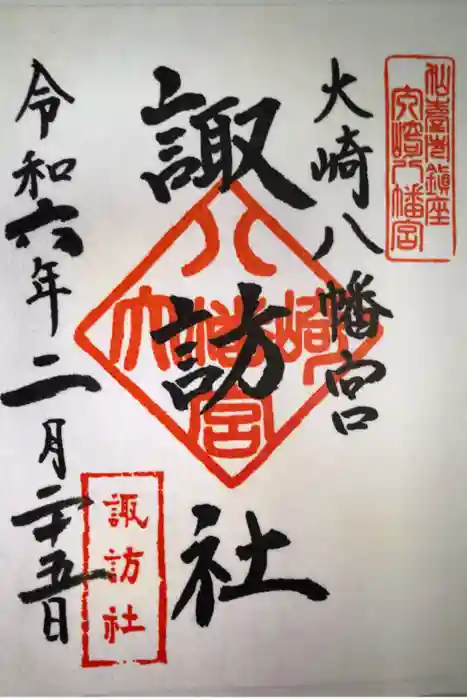 仙臺市鎮座
大崎八幡宮
大崎八幡宮
諏訪社
大崎八幡宮
諏訪社
令和六年二月二十五日